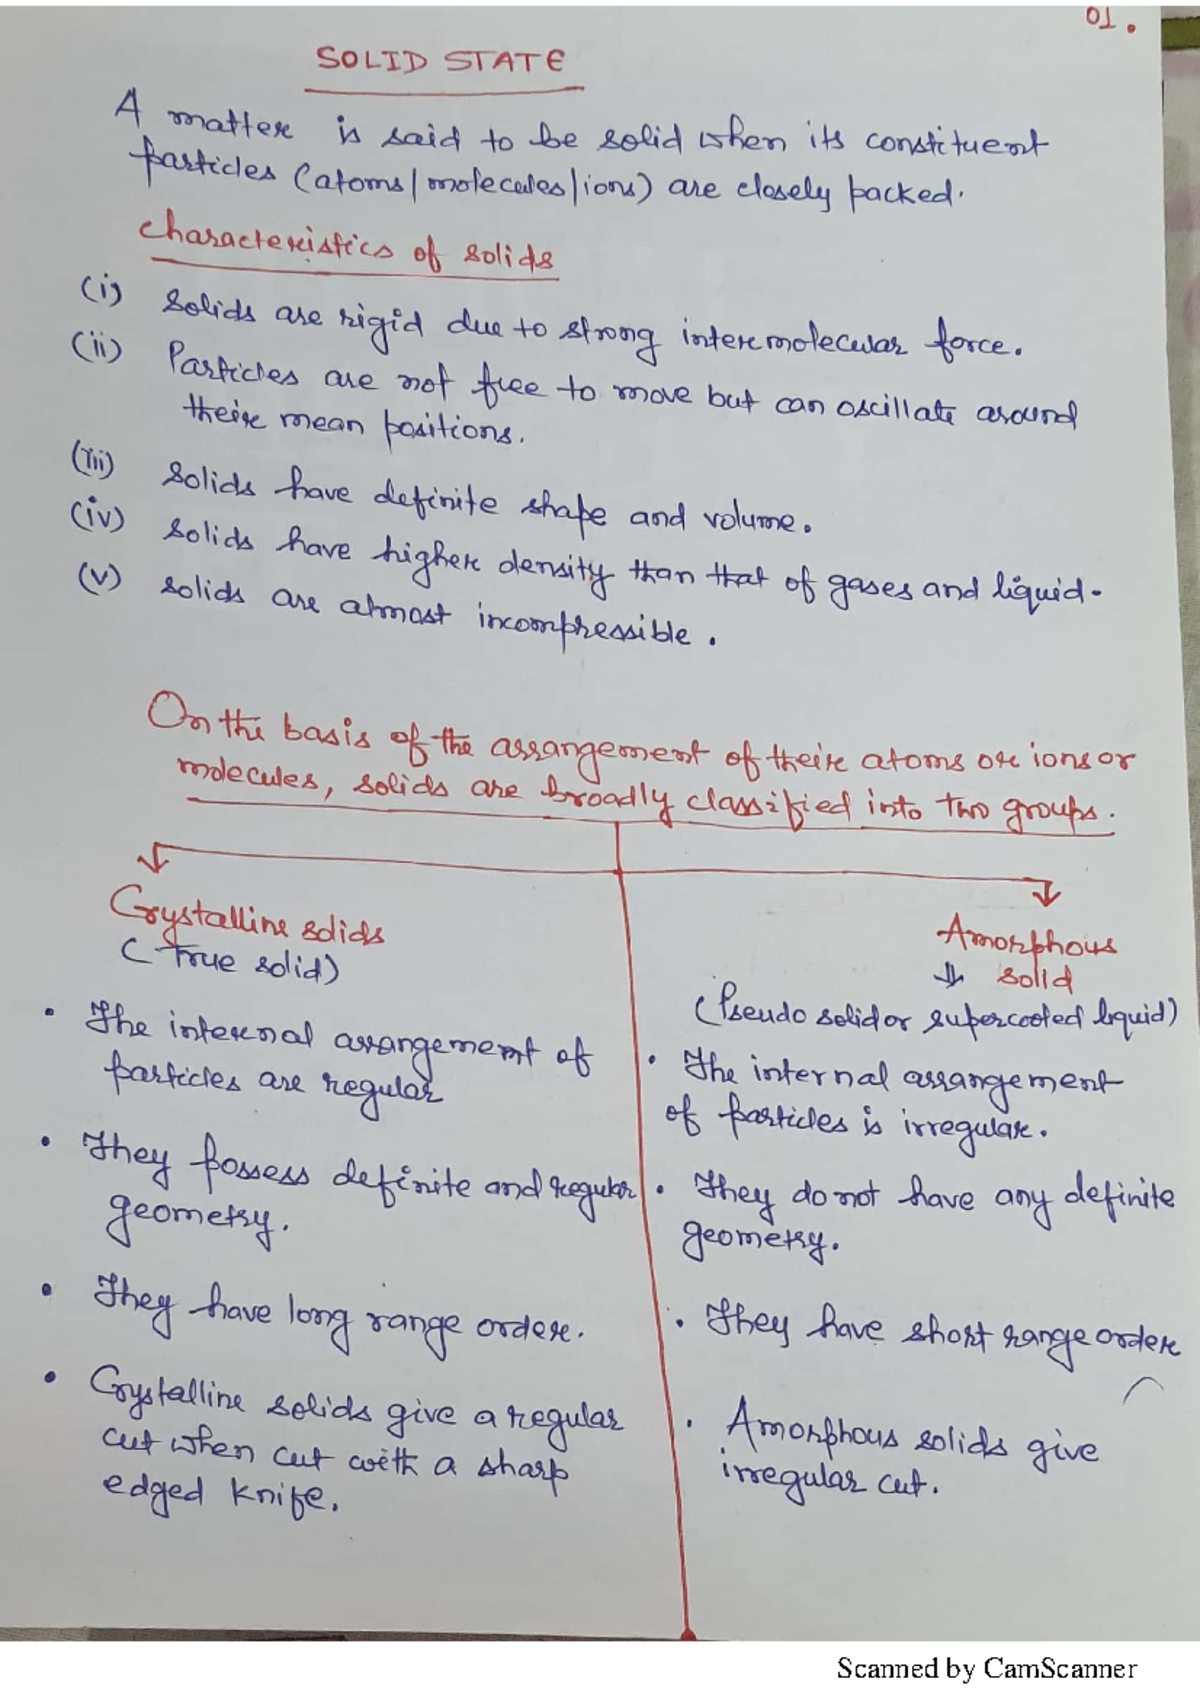 01.
SOLID STATE
A matter is said to be solid when its constituent
particles (atoms/molecules/ions) are closely packed.
Characteristics of solids
(i) Solids are rigid due to strong intermolecular force.
(ii) Particles are not free to move but can oscillate around
their mean positions.
(iii) Solids have definite shape and volume.
(iv) Solids have higher density than that of gases and liquid.
(v) solids are almost incompressible.
On the basis of the arrangement of their atoms or ions or
molecules, solids are broadly classified into two groups.
Crystalline solids
(True solid)
• The internal arrangement of
particles are regular
• They possess definite and regular
geometry.
• They have long range order.
• Crystalline solids give a regular
cut when cut with a sharp
edged knife.
Amorphous
solid
(Pseudo solid or supercooled liquid)
• The internal arrangement
of particles is irregular.
• They do not have any definite
geometry.
• They have short range order
• Amorphous solids give
irregular cut.
Scanned by CamScanner